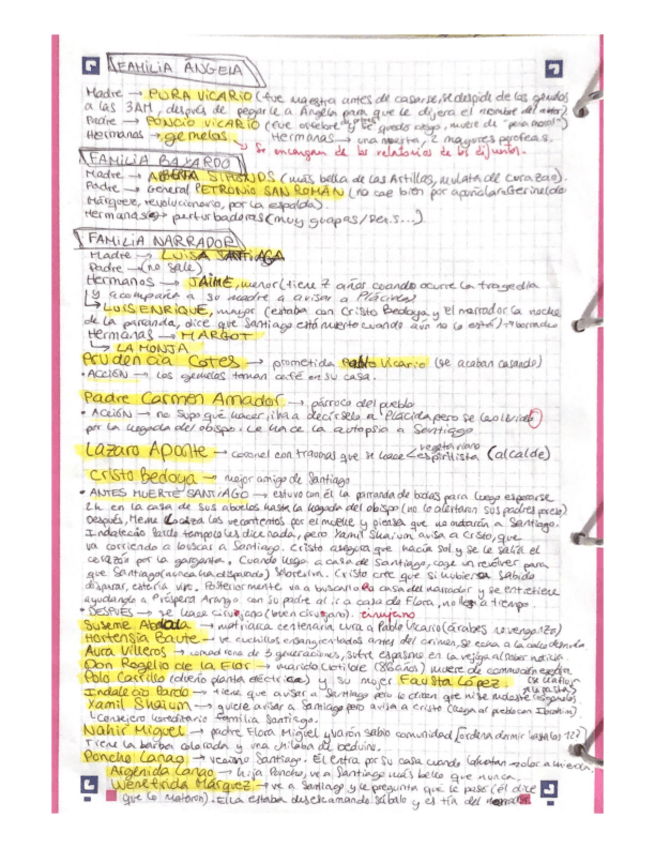 FAMILIA ÁNGELA
Madre → PURA VICARIO (fue maestra antes de casarse, se despide de los gemelos
a las 3AM, después de pegarle a Ángela para que le dijera el nombre del autor)
Padre → PONCIO VICARIO (fue orfebre y se quedó ciego, muere de "pena moral")
Hermanos → gemelos Hermanas → una muerta, 2 mayores
Se encargan de los relatorios de los difuntos.
FAMILIA BAYARDO
Madre → ALBERTA SIMONDS (más bella de las Antillas, mulata de Curazao).
Padre → General PETRONIO SAN ROMÁN (no cae bien por apuñalar a Gerineldo
Márquez, revolucionario, por la espalda)
Hermanas → perturbadoras (muy guapas/
FAMILIA NARRADOR
Madre → LUISA SANTIAGA
Padre → (no sale)
Hermanos → JAIME, menor (tiene 7 años cuando ocurre la tragedia
y acompaña a su madre a avisar a Plácida)
LUIS ENRIQUE, mayor (estaba con Cristo Bedoya y el narrador la noche
de la parranda, dice que Santiago está muerto cuando aún no lo está) → borracho
Hermanas → MARGOT
LA MONJA
Prudencia Cotes → prometida Pablo Vicario (se acaban casando)
• ACCIÓN → los gemelos toman café en su casa.
Padre Carmen Amador → párroco del pueblo
• ACCIÓN → no supo qué hacer, iba a decírselo a Plácida pero se le olvidó
por la llegada del obispo. Le hace la autopsia a Santiago
Lázaro Aponte → coronel con traumas que se hace vegetariano espiritista (alcalde)
Cristo Bedoya → mejor amigo de Santiago
• ANTES MUERTE SANTIAGO → estuvo con él la parranda de bodas para luego esperarse
2h en la casa de sus abuelos hasta la llegada del obispo (no le alertaron sus padres
Después, Meme Loaiza los ve contentos por el muelle y piensa que no matarán a Santiago.
Indalecio Pardo tampoco les dice nada, pero Yamil Shaium avisa a Cristo, que
va corriendo a buscar a Santiago. Cristo asegura que hacía sol y se le salía el
corazón por la garganta. Cuando llega a casa de Santiago, coge un revólver para
que Santiago (nunca ha disparado) Cristo cree que si hubiera sabido
disparar, estaría vivo. Posteriormente va a buscarlo a casa del narrador y se entretiene
ayudando a Próspera Arango con su padre al ir a casa de Flora, no llega a tiempo.
• DESPUÉS → se hace cirujano (buen cirujano). cirujano
Suseme Abdala → matriarca centenaria cura a Pablo Vicario (árabes no venganza)
Hortensia Baute → ve cuchillos ensangrentados antes del crimen, se echa a la calle
Aura Villeros → comadrona de 3 generaciones, sufre espasmo en la vejiga al saber noticia.
Don Rogelio de la Flor → marido Clotilde (86 años) muere de conmoción
Polo Carrillo (dueño planta eléctrica) y su mujer Fausta López.
Indalecio Pardo → tiene que avisar a Santiago pero le dicen que ni se moleste
Yamil Shaium → quiere avisar a Santiago pero avisa a Cristo (llega al pueblo con Ibrahim).
Consejero hereditario familia Santiago.
Nahir Miguel → padre Flora Miguel y varón sabio comunidad
Tiene la barba colorada y una chilaba de beduino.
Poncho Lanao → vecino Santiago. Él entra por su casa cuando → olor a mierda.
Argénida Lanao → hija Poncho, ve a Santiago más bello que nunca.
Wenefrida Márquez → ve a Santiago y le pregunta qué le pasó (él dice
que lo mataron). Ella estaba desescamando sábalo y es tía del narrador.